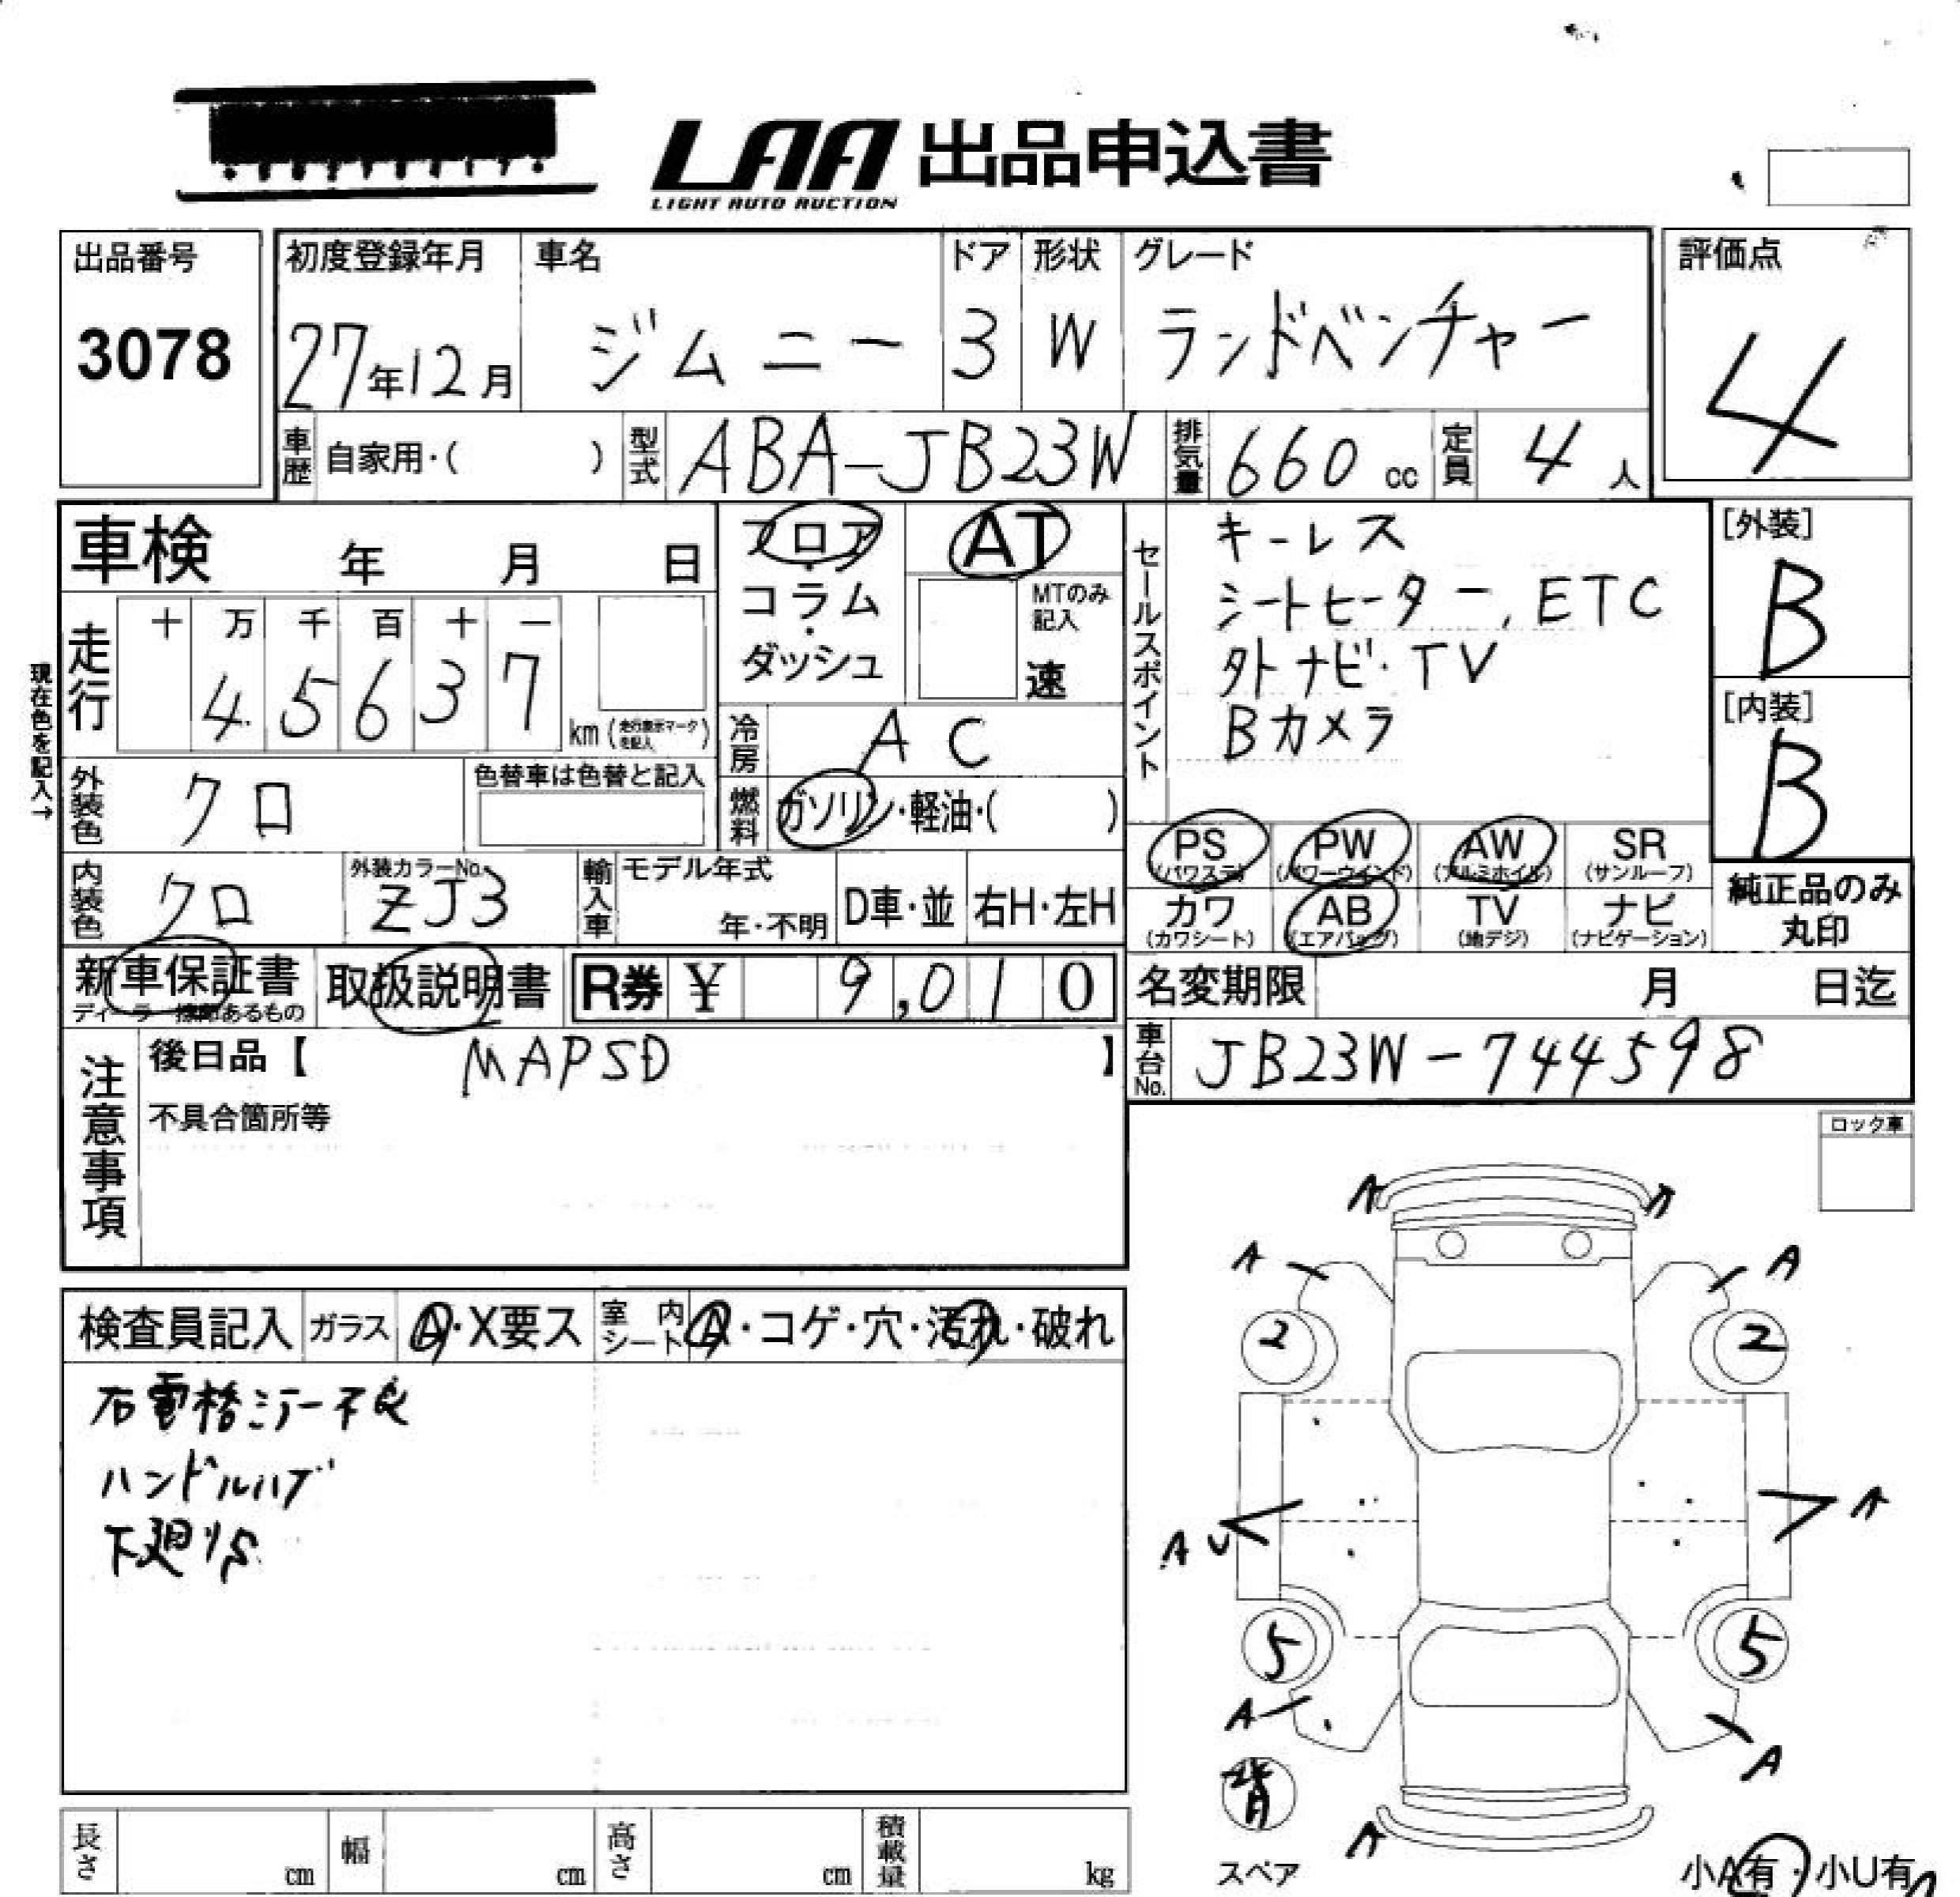 LAA 出品申込書
LIGHT AUTO AUCTION
出品番号
3078
初度登録年月
27年12月
車名
ジムニー
ドア
3
形状
W
グレード
ランドベンチャー
評価点
4
車歴 自家用・( )
型式 ABA-JB23W
排気量 660 cc
定員 4 人
車検 年 月 日
フロア・
コラム・
ダッシュ
AT
MTのみ記入
速
セールスポイント
キーレス
シートヒーター, ETC
外ナビ・TV
Bカメラ
[外装]
B
[内装]
B
現在色を記入→
走行
十 万 千 百 十 一
4 5 6 3 7
km (走行表示マークを記入)
冷房 AC
燃料 ガソリン・軽油・( )
外装色 クロ
色替車は色替と記入
内装色 クロ
外装カラーNo.
ZJ3
輸入車
モデル年式
年・不明
D車・並
右H・左H
PS
(パワステ)
PW
(パワーウインド)
AW
(アルミホイル)
SR
(サンルーフ)
カワ
(カワシート)
AB
(エアバッグ)
TV
(地デジ)
ナビ
(ナビゲーション)
純正品のみ
丸印
新車保証書
取扱説明書
R券 ¥ 9,010
名変期限 月 日迄
車台No. JB23W-744598
注意事項
後日品【 MAPSD 】
不具合箇所等
ロック車
検査員記入
ガラス
A・X要ス
室内シート
A・コゲ・穴・汚れ・破れ
右電格ミラー不良
ハンドルハゲ
下廻りS
A
A
A A
2 2
AU A
5 5
A A
背
スペア
A
小A有・小U有
長さ cm
幅 cm
高さ cm
積載量 kg